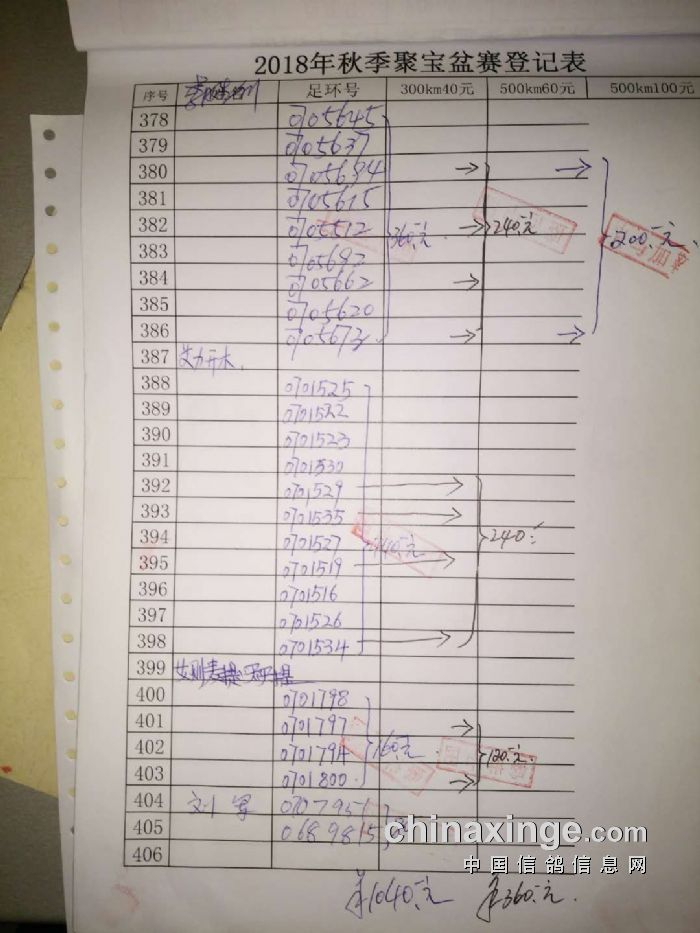 2018年秋季聚宝盆赛登记表
序号 足环号 300km40元 500km60元 500km100元
378 0705645
379 0705637
380 0705634
381 0705615
382 0705512 360元 240元 200元
383 0705692
384 0705662
385 0705620
386 0705673
387
388 0701525
389 0701532
390 0701523
391 0701530
392 0701529
393 0701535
394 0701527 440元 240
395 0701519
396 0701516
397 0701526
398 0701534
399
400 0701798
401 0701797
402 0701794 160元 120元
403 0701800
404 刘军 0707951
405 0689815
406
chinaxinge.com
中国信鸽信息网
1040元 360元